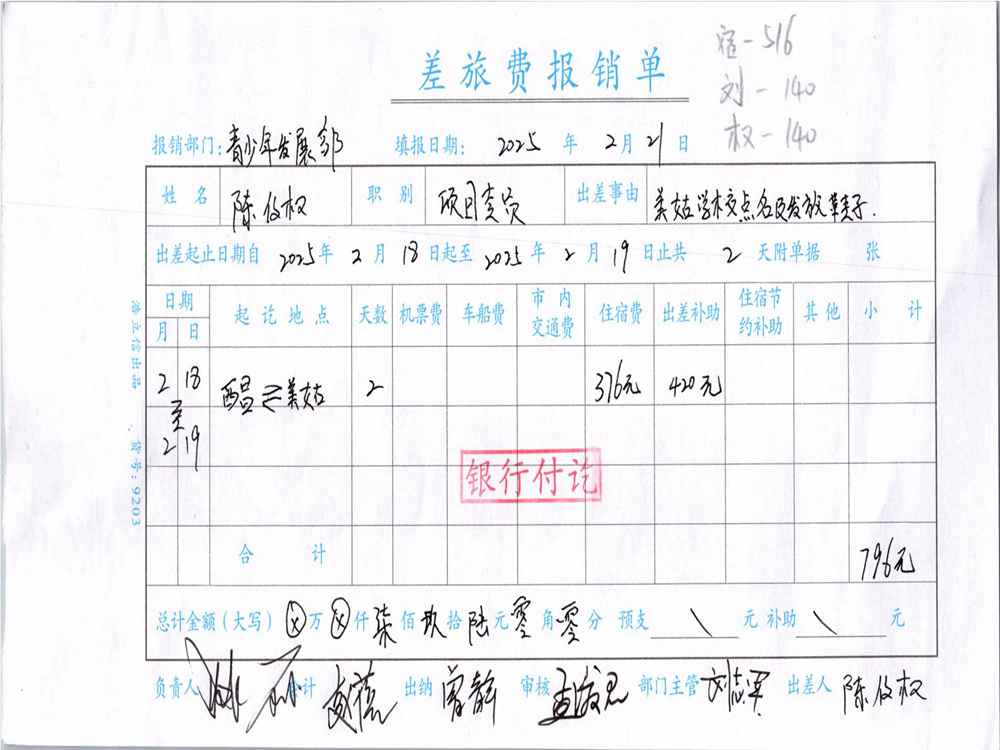 宿-516
差旅费报销单
刘-140
权-140
报销部门: 青少年发展部 填报日期: 2025 年 2 月 21 日
姓名 陈俊权 职别 项目专员 出差事由 美姑学校交点名及发放草夹子.
出差起止日期自 2025 年 2 月 18 日起至 2025 年 2 月 19 日止共 2 天附单据 张
日期 起讫地点 天数 机票费 车船费 市内交通费 住宿费 出差补助 住宿节约补助 其他 小计
月 日
2 18 西昌⇌美姑 2 376元 420元
至
2 19
银行付讫
合计 796元
总计金额(大写) ⊗万⊗仟柒佰玖拾陆元零角零分 预支 \ 元 补助 \ 元
负责人 会计 出纳 曾静 审核 部门主管 刘志军 出差人 陈俊权
浩立信出品 货号:9203